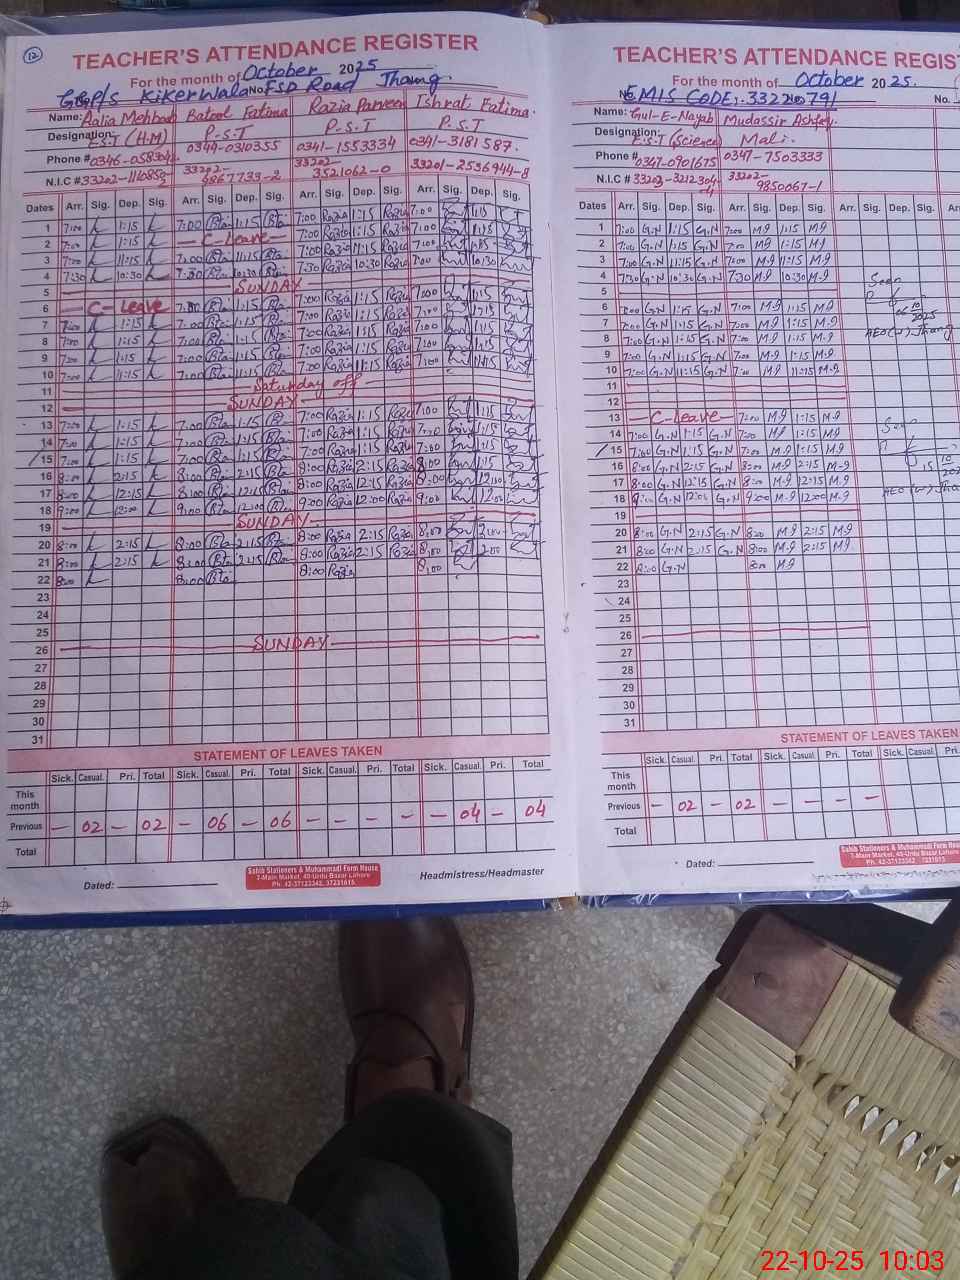 12
TEACHER'S ATTENDANCE REGISTER
For the month of October 2025
GGP/S KikerWala No. FSD Road Jhang.
Name: Aalia Mehboob Batool Fatima Razia Parveen Ishrat Fatima.
Designation: E.S.T (H.M) P-S-T P-S-T P.S.T
Phone # 0344-0310355 0341-1553334 0341-3181587.
N.I.C # 33202- 33202- 33202-3521062-0 33201-2536944-8
Dates Arr. Sig. Dep. Sig. Arr. Sig. Dep. Sig. Arr. Sig. Dep. Sig. Arr. Sig. Dep. Sig.
1 7:00 1:15 7:00 1:15 7:00 Razia 1:15 Razia 7:00 1:15
2 7:00 1:15 C-Leave 7:00 Razia 1:15 Razia 7:00
3 7:00 11:15 7:00 11:15 7:00 Razia 11:15 Razia 7:00
4 7:30 10:30 7:30 10:30 7:30 Razia 10:30 Razia 10:30
5 SUNDAY
6 C-Leave 7:00 1:15 7:00 Razia 1:15 Razia 7:00 1:15
7 7:00 1:15 7:00 1:15 7:00 Razia 1:15 Razia 7:00 1:15
8 7:00 1:15 7:00 1:15 7:00 Razia 1:15 Razia 7:00 1:15
9 7:00 1:15 7:00 1:15 7:00 Razia 1:15 Razia 7:00 1:15
10 7:00 11:15 7:00 11:15 7:00 Razia 11:15 Razia 7:00 11:15
11 Saturday off
12 SUNDAY
13 7:00 1:15 7:00 1:15 7:00 Razia 1:15 Razia 7:00 1:15
14 7:00 1:15 7:00 1:15 7:00 Razia 1:15 Razia 7:00 1:15
15 7:00 1:15 7:00 1:15 7:00 Razia 1:15 Razia 7:00 1:15
16 8:00 2:15 8:00 2:15 8:00 Razia 2:15 Razia 8:00
17 8:00 12:15 8:00 12:15 8:00 Razia 12:15 Razia 8:00
18 9:00 12:00 9:00 12:00 9:00 Razia 12:00 Razia 9:00 12:00
19 SUNDAY
20 8:00 2:15 8:00 2:15 8:00 Razia 2:15 Razia 8:00
21 8:00 2:15 8:00 2:15 8:00 Razia 2:15 Razia 8:00
22 8:00 8:00 8:00 Razia 8:00
23
24
25
26 SUNDAY
27
28
29
30
31
STATEMENT OF LEAVES TAKEN
Sick. Casual. Pri. Total Sick. Casual. Pri. Total Sick. Casual. Pri. Total Sick. Casual. Pri. Total
This month
Previous — 02 — 02 — 06 — 06 — — — — — 04 — 04
Total
Dated:
Sahib Stationers & Muhammadi Form House
7-Main Market, 40-Urdu Bazar Lahore
Ph. 42-37123342, 37231615
Headmistress/Headmaster
TEACHER'S ATTENDANCE REGIST
For the month of October 2025.
EMIS CODE:- No.
Name: Gul-E-Nayab Mudassir Ashfaq
Designation: E.S.T (Science) Mali.
Phone # 0347-0901675 0347-7503333
N.I.C # 33202-9850067-1
Dates Arr. Sig. Dep. Sig. Arr. Sig. Dep. Sig. Arr. Sig. Dep. Sig. Arr
1 7:00 G.N 1:15 G.N 7:00 M.A 1:15 M.A
2 7:00 G.N 1:15 G.N 7:00 M.A 1:15 M.A
3 7:00 G.N 11:15 G.N 7:00 M.A 11:15 M.A
4 7:30 G.N 10:30 G.N 7:30 M.A 10:30 M.A
5
6 7:00 G.N 1:15 G.N 7:00 M.A 1:15 M.A
7 7:00 G.N 1:15 G.N 7:00 M.A 1:15 M.A
8 7:00 G.N 1:15 G.N 7:00 M.A 1:15 M.A
9 7:00 G.N 1:15 G.N 7:00 M.A 1:15 M.A
10 7:00 G.N 11:15 G.N 7:00 M.A 11:15 M.A
11
12
13 C-Leave 7:00 M.A 1:15 M.A
14 7:00 G.N 1:15 G.N 7:00 M.A 1:15 M.A
15 7:00 G.N 1:15 G.N 7:00 M.A 1:15 M.A
16 8:00 G.N 2:15 G.N 8:00 M.A 2:15 M.A
17 8:00 G.N 12:15 G.N 8:00 M.A 12:15 M.A
18 9:00 G.N 12:00 G.N 9:00 M.A 12:00 M.A
19
20 8:00 G.N 2:15 G.N 8:00 M.A 2:15 M.A
21 8:00 G.N 2:15 G.N 8:00 M.A 2:15 M.A
22 8:00 G.N 8:00 M.A
23
24
25
26
27
28
29
30
31
Seen
06 10 2025
AEO(W) Jhang
Seen
15 10
AEO (W)
STATEMENT OF LEAVES TAKEN
Sick. Casual. Pri. Total Sick. Casual. Pri. Total Sick. Casual. Pri. Total Sick
This month
Previous — 02 — 02 — — — —
Total
Dated:
Sahib Stationers & Muhammadi Form House
7-Main Market, 40-Urdu Bazar Lahore
Ph. 42-37123342, 7231615
22-10-25 10:03